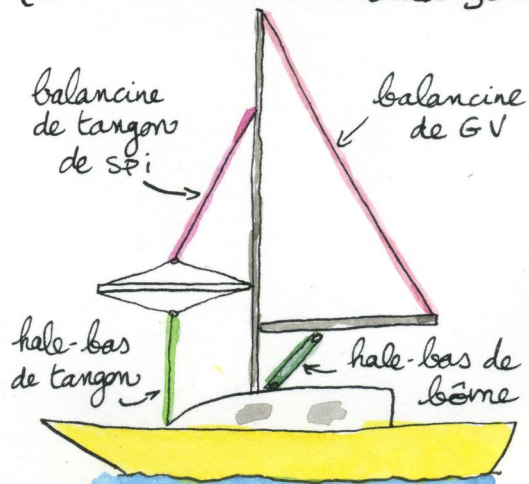 balancine
de tangon
de spi
balancine
de GV
hale-bas
de tangon
hale-bas de
bôme